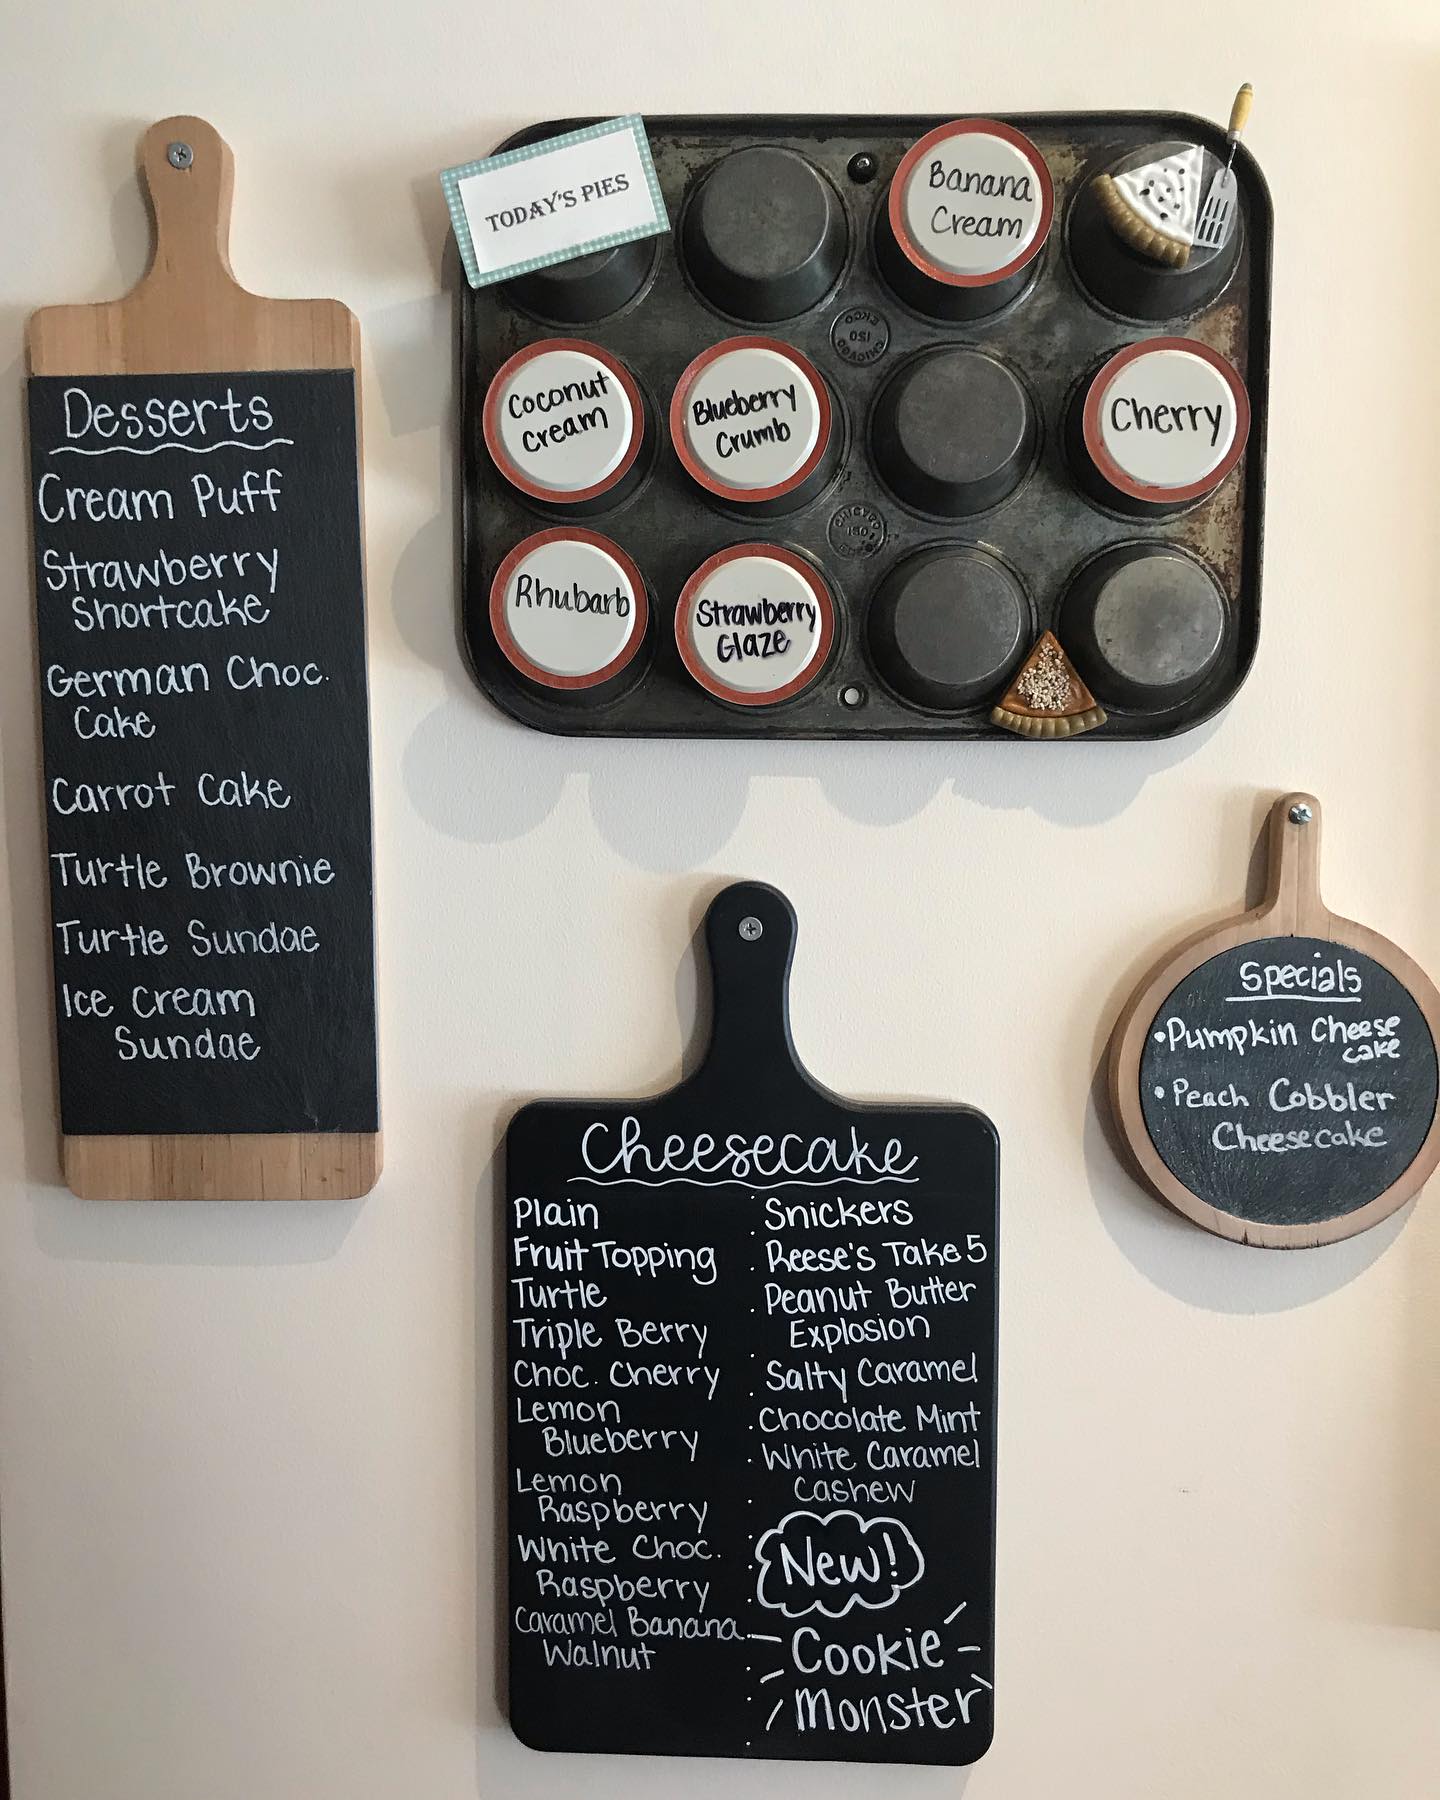 Desserts
Cream Puff
Strawberry
Shortcake
German Choc.
Cake
Carrot Cake
Turtle Brownie
Turtle Sundae
Ice Cream
Sundae
TODAY'S PIES
Banana
Cream
EKCO
CHICAGO
150
Coconut
Cream
Blueberry
Crumb
Cherry
CHICAGO
Rhubarb
Strawberry
Glaze
Specials
•Pumpkin Cheese
cake
•Peach Cobbler
Cheesecake
Cheesecake
Plain
Fruit Topping
Turtle
Triple Berry
Choc. Cherry
Lemon
Blueberry
Lemon
Raspberry
White Choc.
Raspberry
Caramel Banana
Walnut
Snickers
Reese's Take 5
Peanut Butter
Explosion
Salty Caramel
Chocolate Mint
White Caramel
Cashew
New!
Cookie
Monster